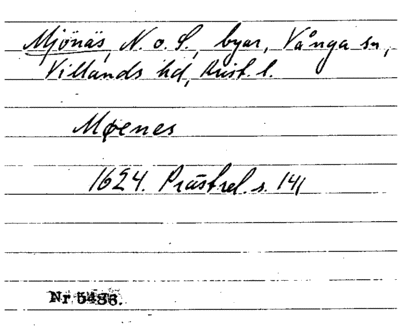 Mjönäs, N. o. S., byar, Vånga sn,
Villands hd, Krist. l.
Møenes
1624. Prästrel. s. 141
Nr 5486.